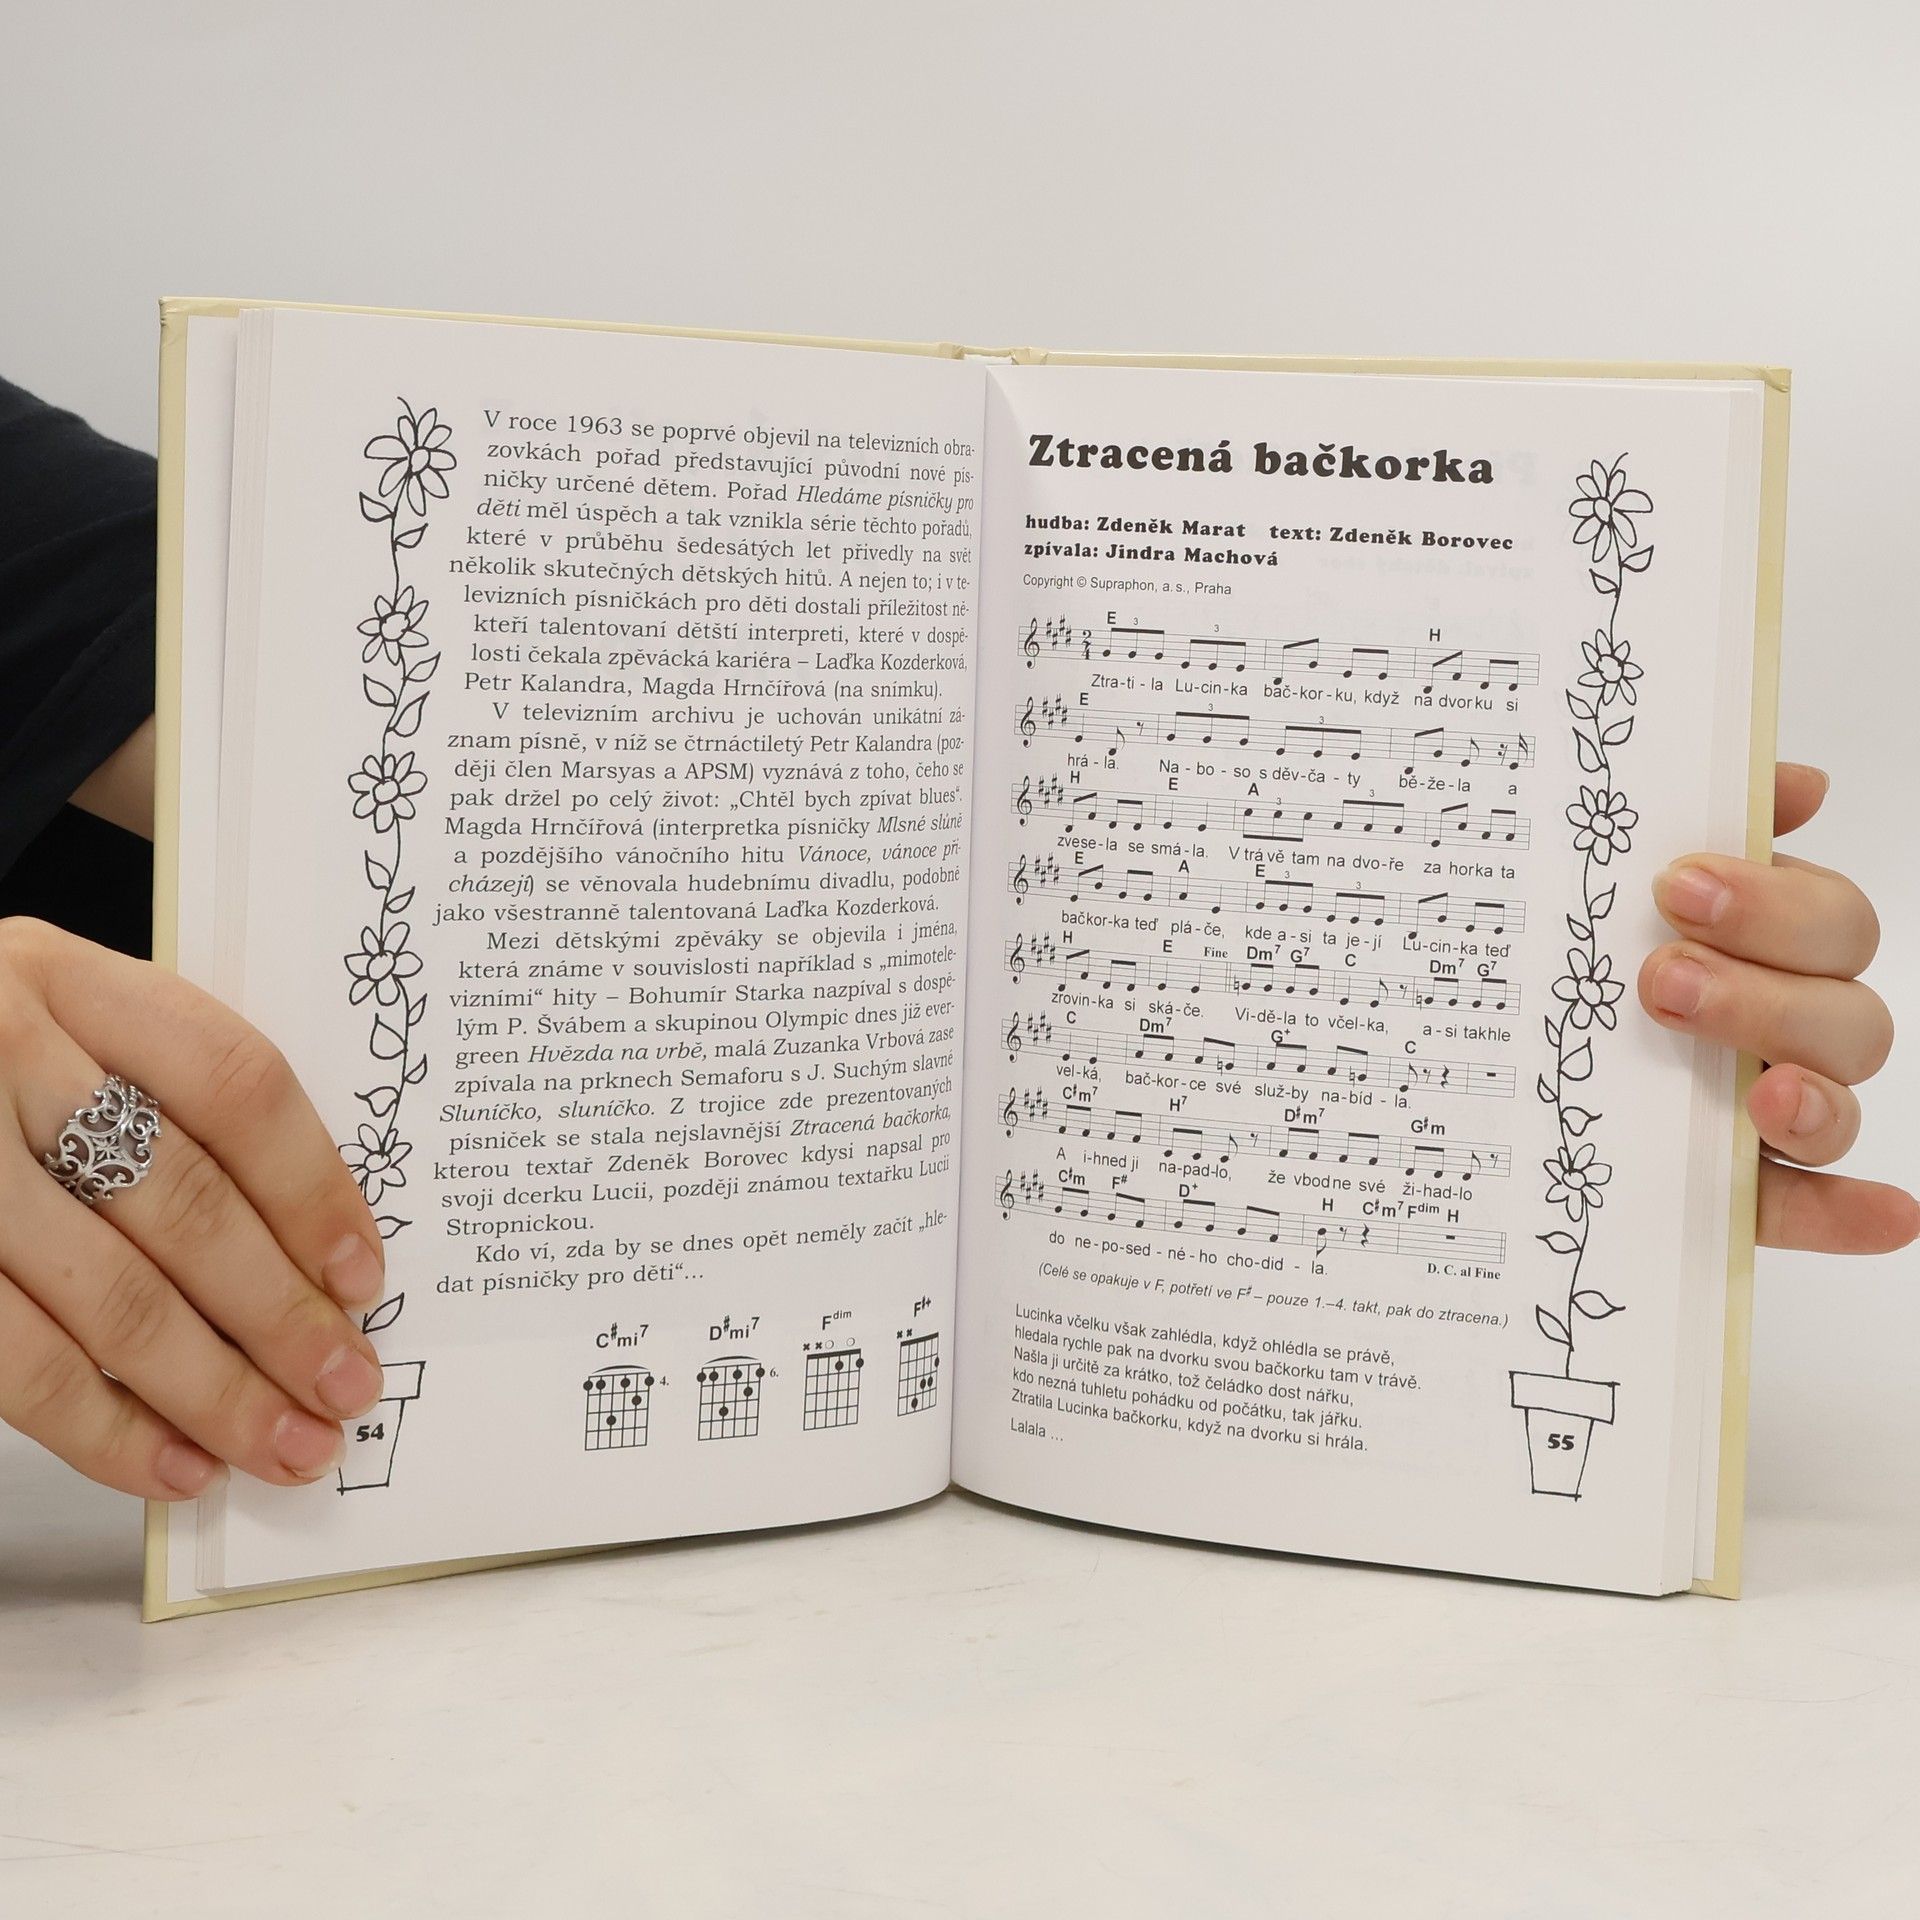 V roce 1963 se poprvé objevil na televizních obra-
zovkách pořad představující původní nové pís-
ničky určené dětem. Pořad Hledáme písničky pro
děti měl úspěch a tak vznikla série těchto pořadů,
které v průběhu šedesátých let přivedly na svět
několik skutečných dětských hitů. A nejen to; i v te-
levizních písničkách pro děti dostali příležitost ně-
kteří talentovaní dětští interpreti, které v dospě-
losti čekala zpěvácká kariéra – Laďka Kozderková,
Petr Kalandra, Magda Hrnčířová (na snímku).
V televizním archivu je uchován unikátní zá-
znam písně, v níž se čtrnáctiletý Petr Kalandra (poz-
ději člen Marsyas a APSM) vyznává z toho, čeho se
pak držel po celý život: „Chtěl bych zpívat blues“.
Magda Hrnčířová (interpretka písničky Mlsné slůně
a pozdějšího vánočního hitu Vánoce, vánoce při-
cházejí) se věnovala hudebnímu divadlu, podobně
jako všestranně talentovaná Laďka Kozderková.
Mezi dětskými zpěváky se objevila i jména,
která známe v souvislosti například s „mimotele-
vizními“ hity – Bohumír Starka nazpíval s dospě-
lým P. Švábem a skupinou Olympic dnes již ever-
green Hvězda na vrbě, malá Zuzanka Vrbová zase
zpívala na prknech Semaforu s J. Suchým slavné
Sluníčko, sluníčko. Z trojice zde prezentovaných
písniček se stala nejslavnější Ztracená bačkorka,
kterou textař Zdeněk Borovec kdysi napsal pro
svoji dcerku Lucii, později známou textařku Lucii
Stropnickou.
Kdo ví, zda by se dnes opět neměly začít „hle-
dat písničky pro děti“...
C♯mi7 D♯mi7 Fdim F♯+
4. 6.
54
Ztracená bačkorka
hudba: Zdeněk Marat text: Zdeněk Borovec
zpívala: Jindra Machová
Copyright © Supraphon, a. s., Praha
E 3 3 H
2 4
Ztra-ti - la Lu-cin-ka bač-kor-ku, když na dvorku si
E 3 3
hrá - la. Na - bo - so s děv-ča - ty bě-že-la a
H E A 3 3
zvese-la se smá-la. V trávě tam na dvo-ře za horka ta
E A E 3 3
bačkor-ka teď plá-če, kde a-si ta je-jí Lu-cin-ka teď
H E Fine Dm7 G7 C Dm7 G7
zrovin-ka si ská-če. Vi-dě-la to včel-ka, a-si takhle
C Dm7 G+ C
vel-ká, bač-kor-ce své služ-by na-bíd - la.
C♯m7 H7 D♯m7 G♯m
A i-hned ji na-pad-lo, že vbodne své ži-had-lo
C♯m F♯ D+ H C♯m7 Fdim H
do ne-po-sed - né-ho cho-did - la.
D. C. al Fine
(Celé se opakuje v F, potřetí ve F♯ – pouze 1.–4. takt, pak do ztracena.)
Lucinka včelku však zahlédla, když ohlédla se právě,
hledala rychle pak na dvorku svou bačkorku tam v trávě.
Našla ji určitě za krátko, tož čeládko dost nářku,
kdo nezná tuhletu pohádku od počátku, tak jářku.
Ztratila Lucinka bačkorku, když na dvorku si hrála.
Lalala ...
55